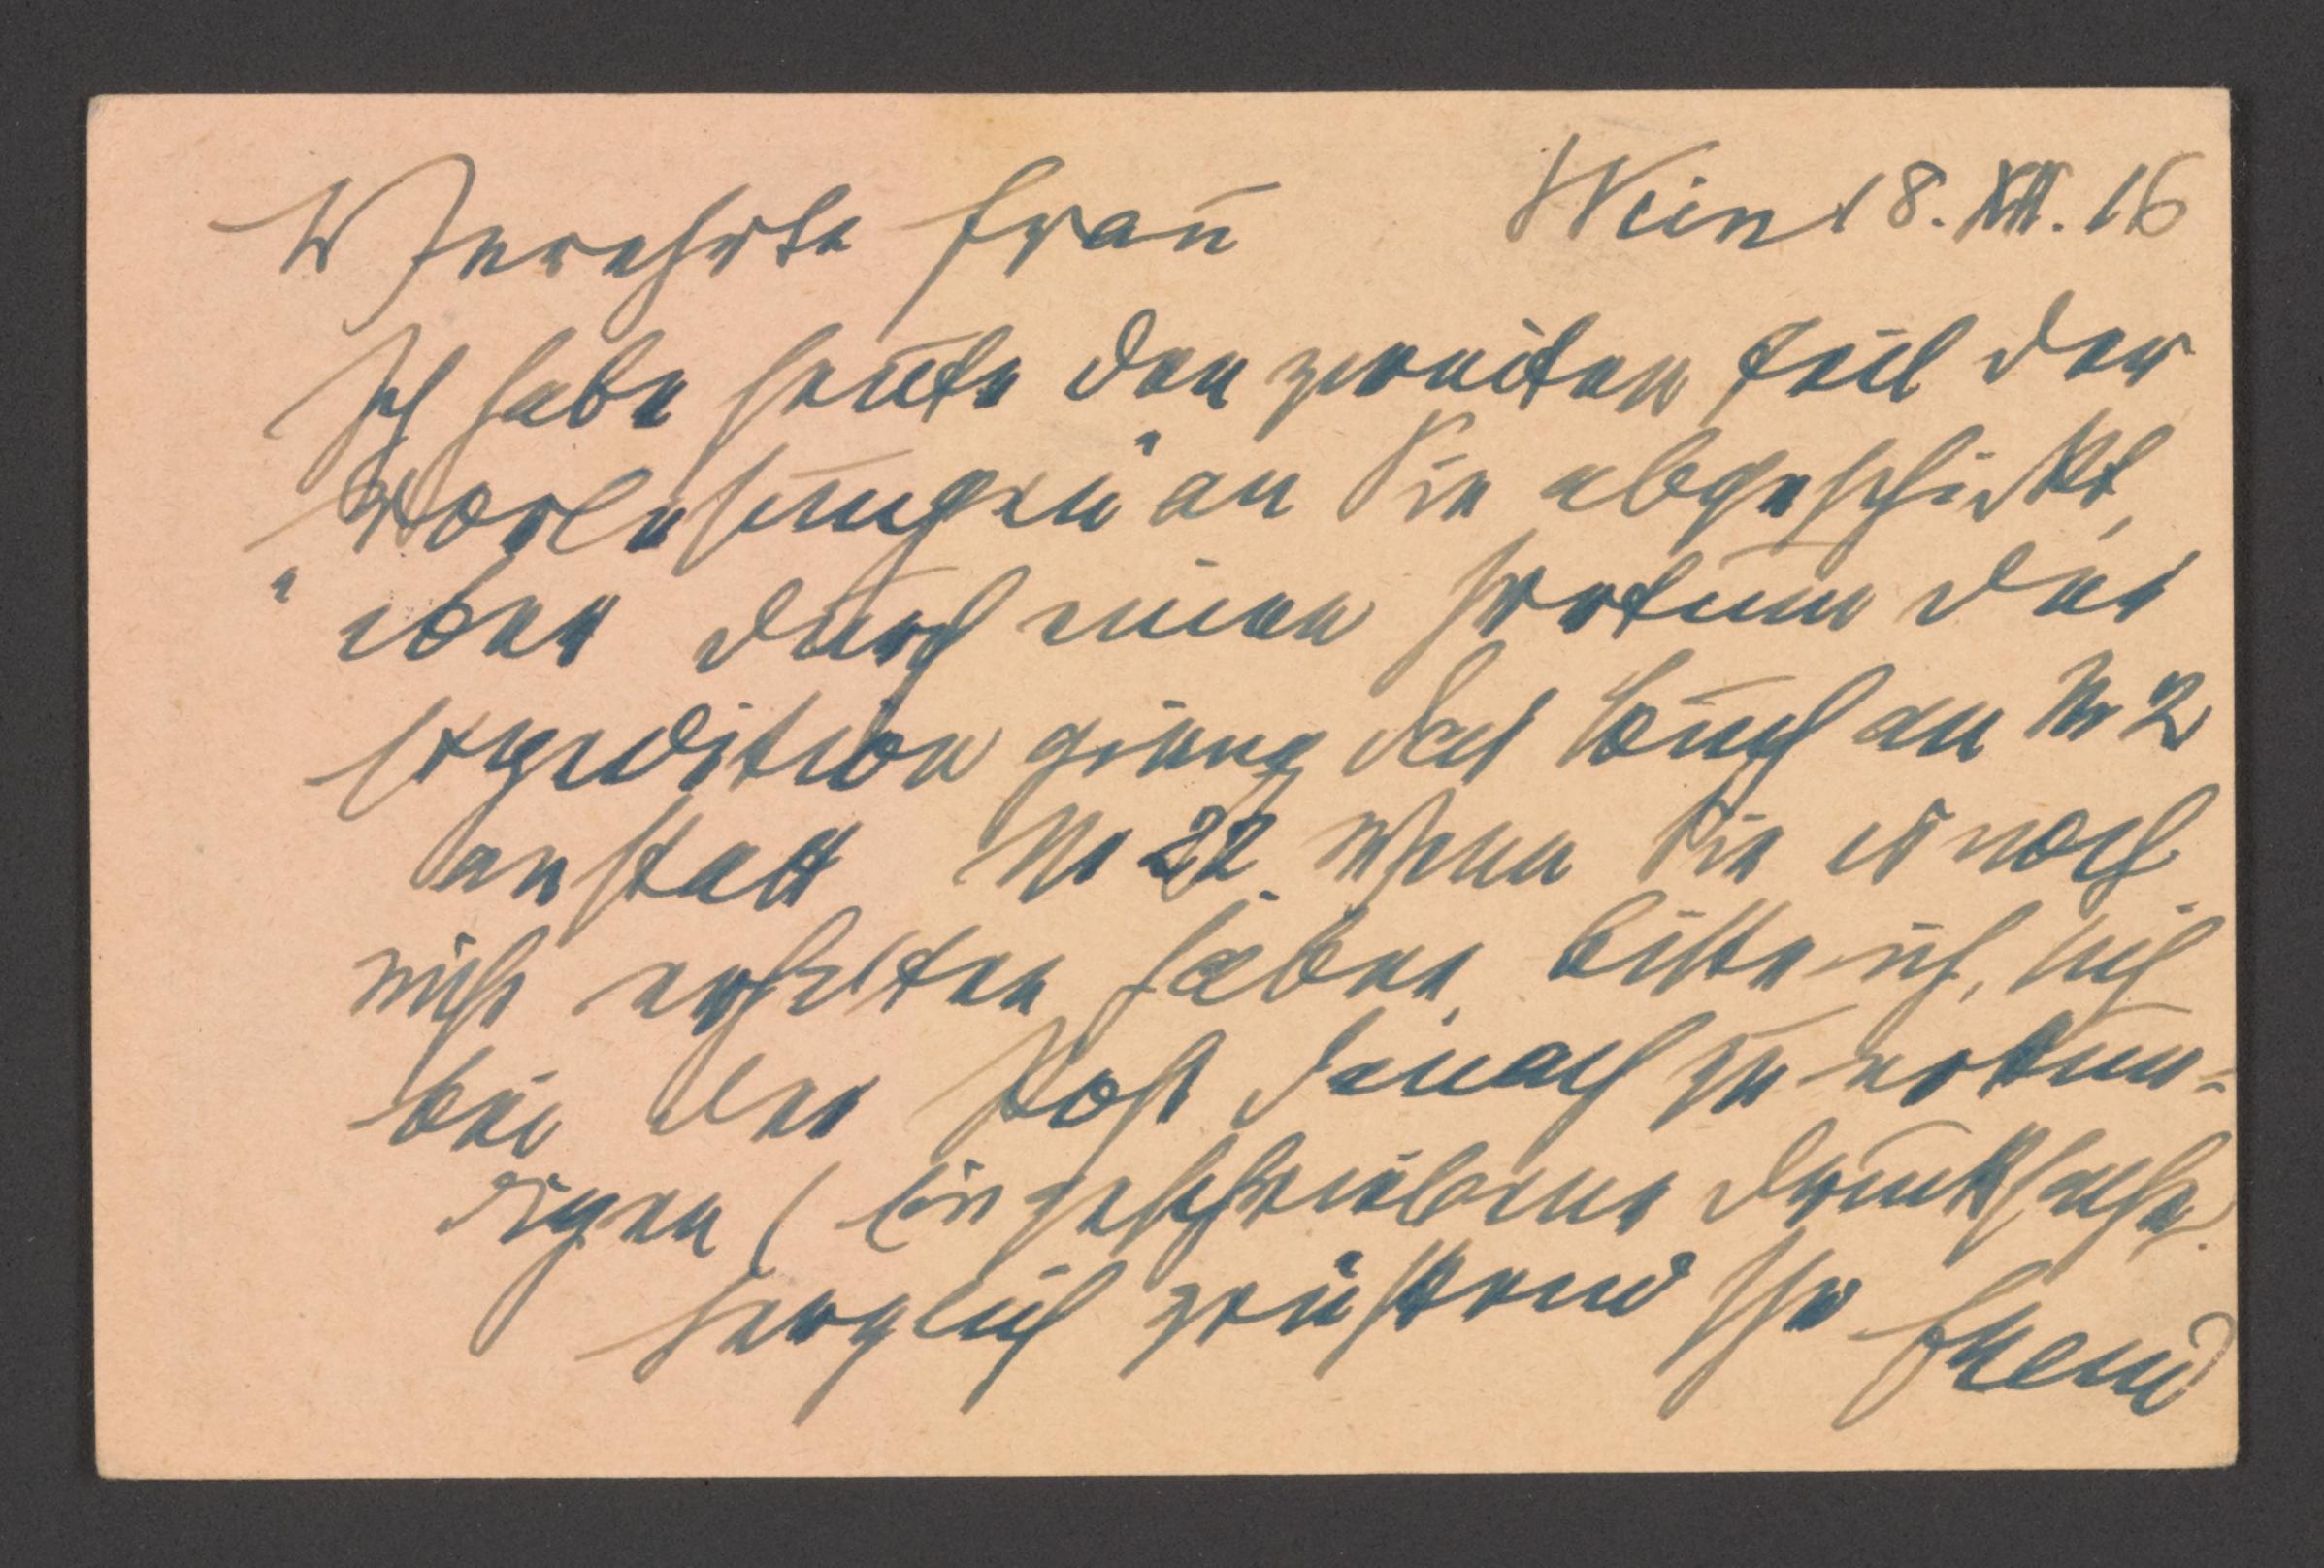 Verehrte Frau Wien 18. XII. 16
Ich habe heute den zweiten Teil der
„Vorlesungen“ an Sie abgeschickt,
aber durch einen Irrtum der
Expedition gieng das Buch an Nr 2
anstatt Nr 22. Wenn Sie es noch
nicht erhalten haben, bitte ich, sich
bei der Post danach zu erkun-
digen (Eingeschriebene Drucksache.
Herzlich grüßend Ihr Freud